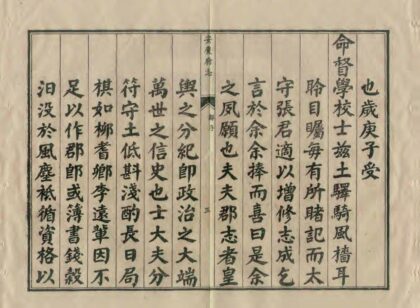 也歲庚子受
命督學校士茲土驛騎風檣耳
聆目矚每有所睹記而太
守張君適以增修志成乞
言於余余捧而喜曰是余
之夙願也夫夫郡志者皇
安慶府志
序
三
輿之分紀即政治之大端
萬世之信史也士大夫分
符守土低斟淺酌長日局
棋如柳耆卿李遠輩固不
足以作郡即或簿書錢穀
汨没於風塵祗循資格以